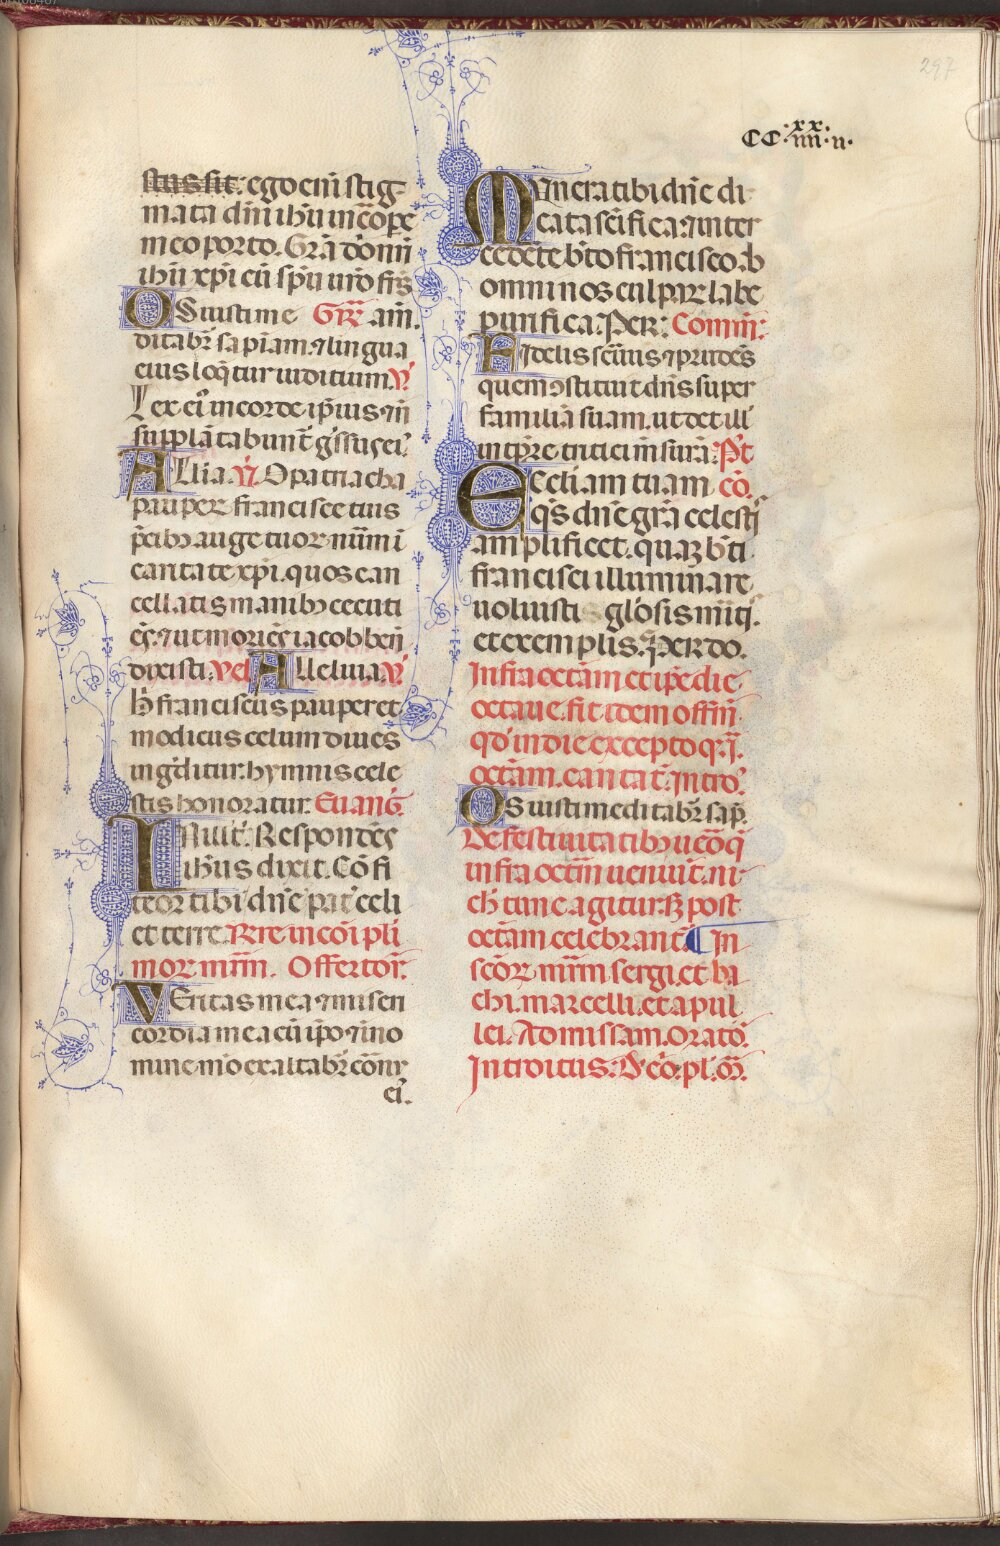 297
CC.xx iiii.ii.
stus sit: ego enī stig
mata dn̄i ih̄u in cor̄pe
meo porto. Gr̄a dom̄i
ih̄u xp̄i cū sp̄u ur̄o fr̄s
OS iusti me Gr̄. am̄.
ditabr̄ sapīam. ⁊ lingua
eius loq̄tur iuditium. V̄
Lex eī in corde ip̄ius. ⁊ n̄
supplātabunt̄ gr̄ssus eī.
Allīa. V̄. O patriarcha
pauper francisce tuis
p̄cibꝫ auge tuoꝝ num̄i
caritate xp̄i. quos can
cellatis manibꝫ cecuti
ēs. ⁊ ut moriēs iacob ben̄
dixisti. vel Alleluia. V̄
h̄ franciscus pauper et
modicus celum diues
ingdit̄ur. hymnis cele
stis honoratur. Euanḡ.
IN illit̄. Respondēs
ih̄us dixit. Cōfi
teor tibi dn̄e pat̄ celi
et terre. Rr̄e in cōi pli
mor mr̄m. Offertor̄.
Veritas mea ⁊ miseri
cordia mea cū ip̄o ⁊ ino
mine m̄o exaltabr̄ cornu
eī.
Munera tibi dn̄e di
cata sc̄ifica: ⁊ inter
cedēte bt̄o francisco. ab
omni nos culpaꝝ labe
purifica. Per: Com̄n:
Fidelis seruus ⁊ prudēs
quem ꝯstituit dn̄s super
familiā suam. ut det illi
in tp̄re tritici m̄surā. Pt̄
Eccliam tuam cō.
qs̄ dn̄e gr̄a celesti
amplificet. quaꝫ bt̄i
francisci illuminare
uoluisti glōsis m̄itis.
et exemplis. Per do.
Infra octām et ip̄e die
octaue. fit idem offm̄
qd̄ in die excepto q. ī.
octām. cantat̄. Intro.
OS iusti meditabr̄ sap̄.
De festiuitatibꝫ uō q̄
infra octām uenuit̄. ni
ch̄ tunc agitur. sꝫ post
octām celebrant̄. ¶ In
scōꝝ mr̄m sergi. et ba
chi. marcelli. et apul
lei. Ad missam. oratō.
Introitus. D cō. pl. m̄.